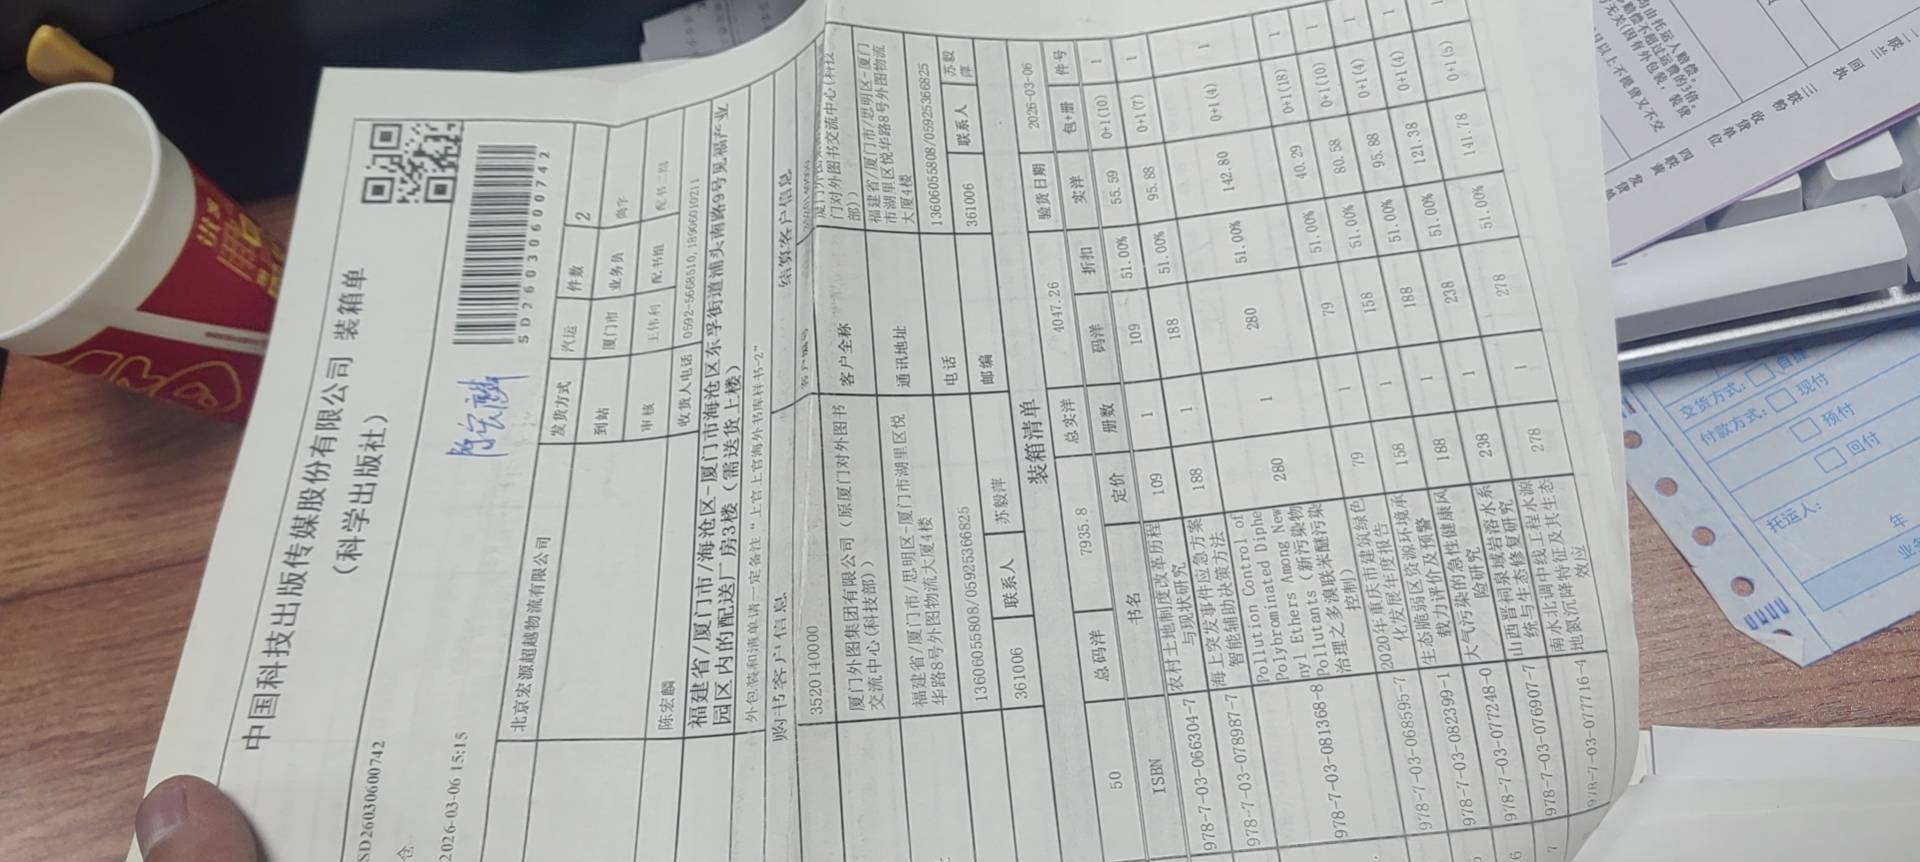 中国科技出版传媒股份有限公司 装箱单
（科学出版社）
SD2603060074２
SD260306００742
仓
2026-03-06 15:15
北京宏源超越物流有限公司
发货方式 汽运 件数 2
到站 厦门市 业务员
审核 王伟利 配书组 配书二组
陈宏麟 收货人电话 0592-5668510,18960010211
福建省/厦门市/海沧区-厦门市海沧区东孚街道浦头南路9号见福产业
园区内的配送厂房3楼（需送货上楼）
外包装和清单请一定备注“上官上官海外书库样书-2”
购书客户信息 结算客户信息
3520140000 客户编号
厦门外图集团有限公司（原厦门对外图书
交流中心(科技部)）
客户全称
门对外图书交流中心(科技
部)）
福建省/厦门市/思明区-厦门市湖里区悦
华路8号外图物流大厦4楼
通讯地址
福建省/厦门市/思明区-厦门
市湖里区悦华路8号外图物流
大厦4楼
13606055808/05925366825 电话 13606055808/05925366825
361006 联系人 苏毅萍 邮编 361006 联系人 苏毅萍
装箱清单
50 总码洋 7935.8 总实洋 4047.26 验货日期 2026-03-06
ISBN 书名 定价 册数 码洋 折扣 实洋 包+册 件号
978-7-03-066304-7 农村土地制度改革历程
与现状研究 109 1 109 51.00% 55.59 0+1(10) 1
978-7-03-078987-7 海上突发事件应急方案
智能辅助决策方法 188 1 188 51.00% 95.88 0+1(7) 1
978-7-03-081368-8 Pollution Control of
Polybrominated Diphe
nyl Ethers Among New
Pollutants（新污染物
治理之多溴联苯醚污染
控制） 280 1 280 51.00% 142.80 0+1(4) 1
978-7-03-068595-7 2020年重庆市建筑绿色
化发展年度报告 79 1 79 51.00% 40.29 0+1(8) 1
978-7-03-082399-1 生态脆弱区资源环境承
载力评价及预警 158 1 158 51.00% 80.58 0+1(10) 1
978-7-03-077248-0 大气污染的急性健康风
险研究 188 1 188 51.00% 95.88 0+1(4) 1
6 978-7-03-076907-7 山西晋祠泉域岩溶水系
统与生态修复研究 238 1 238 51.00% 121.38 0+1(4) 1
7 978-7-03-077716-4 南水北调中线工程水源
地氮沉降特征及其生态
效应 278 1 278 51.00% 141.78 0+1(5) 1
交货方式：
付款方式： 现付
预付
回付
托运人：
年